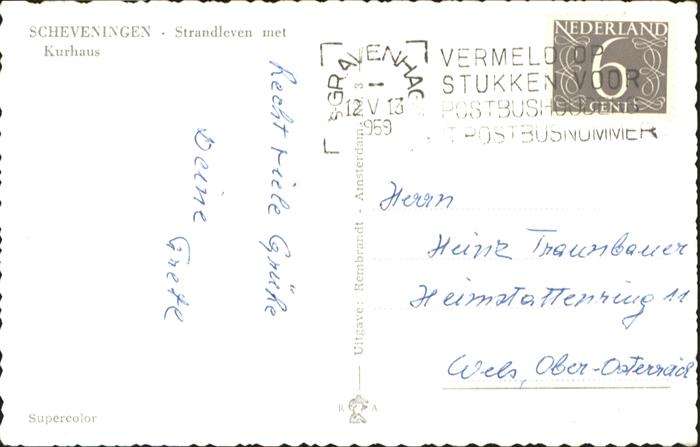 SCHEVENINGEN - Strandleven met
Kurhaus
Recht viele Grüße
Deine
Grete
Supercolor
Uitgave: Rembrandt - Amsterdam
R A
'SGRAVENHAG
I
12 V 13
1959
VERMELD OP
STUKKEN VOOR
POSTBUSHOUDERS
POSTBUSNUMMER
NEDERLAND
6
CENT
Herrn
Heinz Traunbauer
Heimstättenring 11
Wels, Ober-Österreich